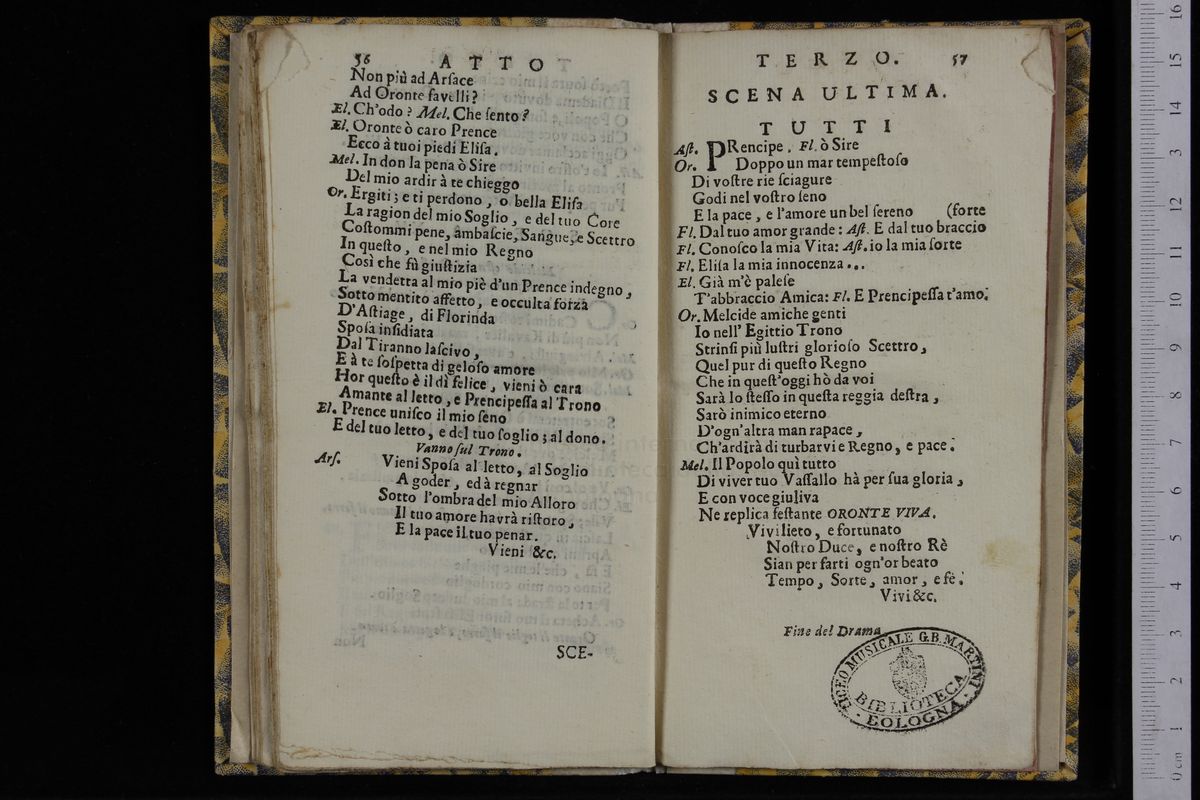 56 ATTO
Non più ad Arſace
Ad Oronte favelli?
El. Ch'odo? Mel. Che ſento?
El. Oronte ò caro Prence
Ecco à tuoi piedi Eliſa.
Mel. In don la pena ò Sire
Del mio ardir à te chieggo
Or. Ergiti; e ti perdono, o bella Eliſa
La ragion del mio Soglio, e del tuo Core
Coſtommi pene, ambaſcie, Sangue, e Scettro
In queſto, e nel mio Regno
Così che fù giuſtizia
La vendetta al mio piè d'un Prence indegno,
Sotto mentito affetto, e occulta forza
D'Aſtiage, di Florinda
Spoſa inſidiata
Dal Tiranno laſcivo,
E à te ſoſpetta di geloſo amore
Hor queſto è il dì felice, vieni ò cara
Amante al letto, e Prencipeſſa al Trono
El. Prence uniſco il mio ſeno
E del tuo letto, e del tuo ſoglio; al dono.
Vanno ſul Trono.
Arſ. Vieni Spoſa al letto, al Soglio
A goder, ed à regnar
Sotto l'ombra del mio Alloro
Il tuo amore havrà riſtoro,
E la pace il tuo penar.
Vieni &c.
SCE-
TERZO. 57
SCENA ULTIMA.
TUTTI
Aſt. PRencipe. Fl. ò Sire
Or. Doppo un mar tempeſtoſo
Di voſtre rie ſciagure
Godi nel voſtro ſeno
E la pace, e l'amore un bel ſereno (forte
Fl. Dal tuo amor grande: Aſt. E dal tuo braccio
Fl. Conoſco la mia Vita: Aſt. io la mia ſorte
Fl. Eliſa la mia innocenza...
El. Già m'è paleſe
T'abbraccio Amica: Fl. E Prencipeſſa t'amo.
Or. Melcide amiche genti
Io nell' Egittio Trono
Strinſi più luſtri glorioſo Scettro,
Quel pur di queſto Regno
Che in queſt'oggi hò da voi
Sarà lo ſteſſo in queſta reggia deſtra,
Sarò inimico eterno
D'ogn'altra man rapace,
Ch'ardirà di turbarvi e Regno, e pace.
Mel. Il Popolo quì tutto
Di viver tuo Vaſſallo hà per ſua gloria,
E con voce giuliva
Ne replica feſtante ORONTE VIVA.
Vivi lieto, e fortunato
Noſtro Duce, e noſtro Rè
Sian per farti ogn'or beato
Tempo, Sorte, amor, e fè.
Vivi &c.
Fine del Drama
LICEO MUSICALE G.B. MARTINI
BIBLIOTECA
BOLOGNA
16
15
14
13
12
11
10
9
8
7
6
5
4
3
2
1
0 cm